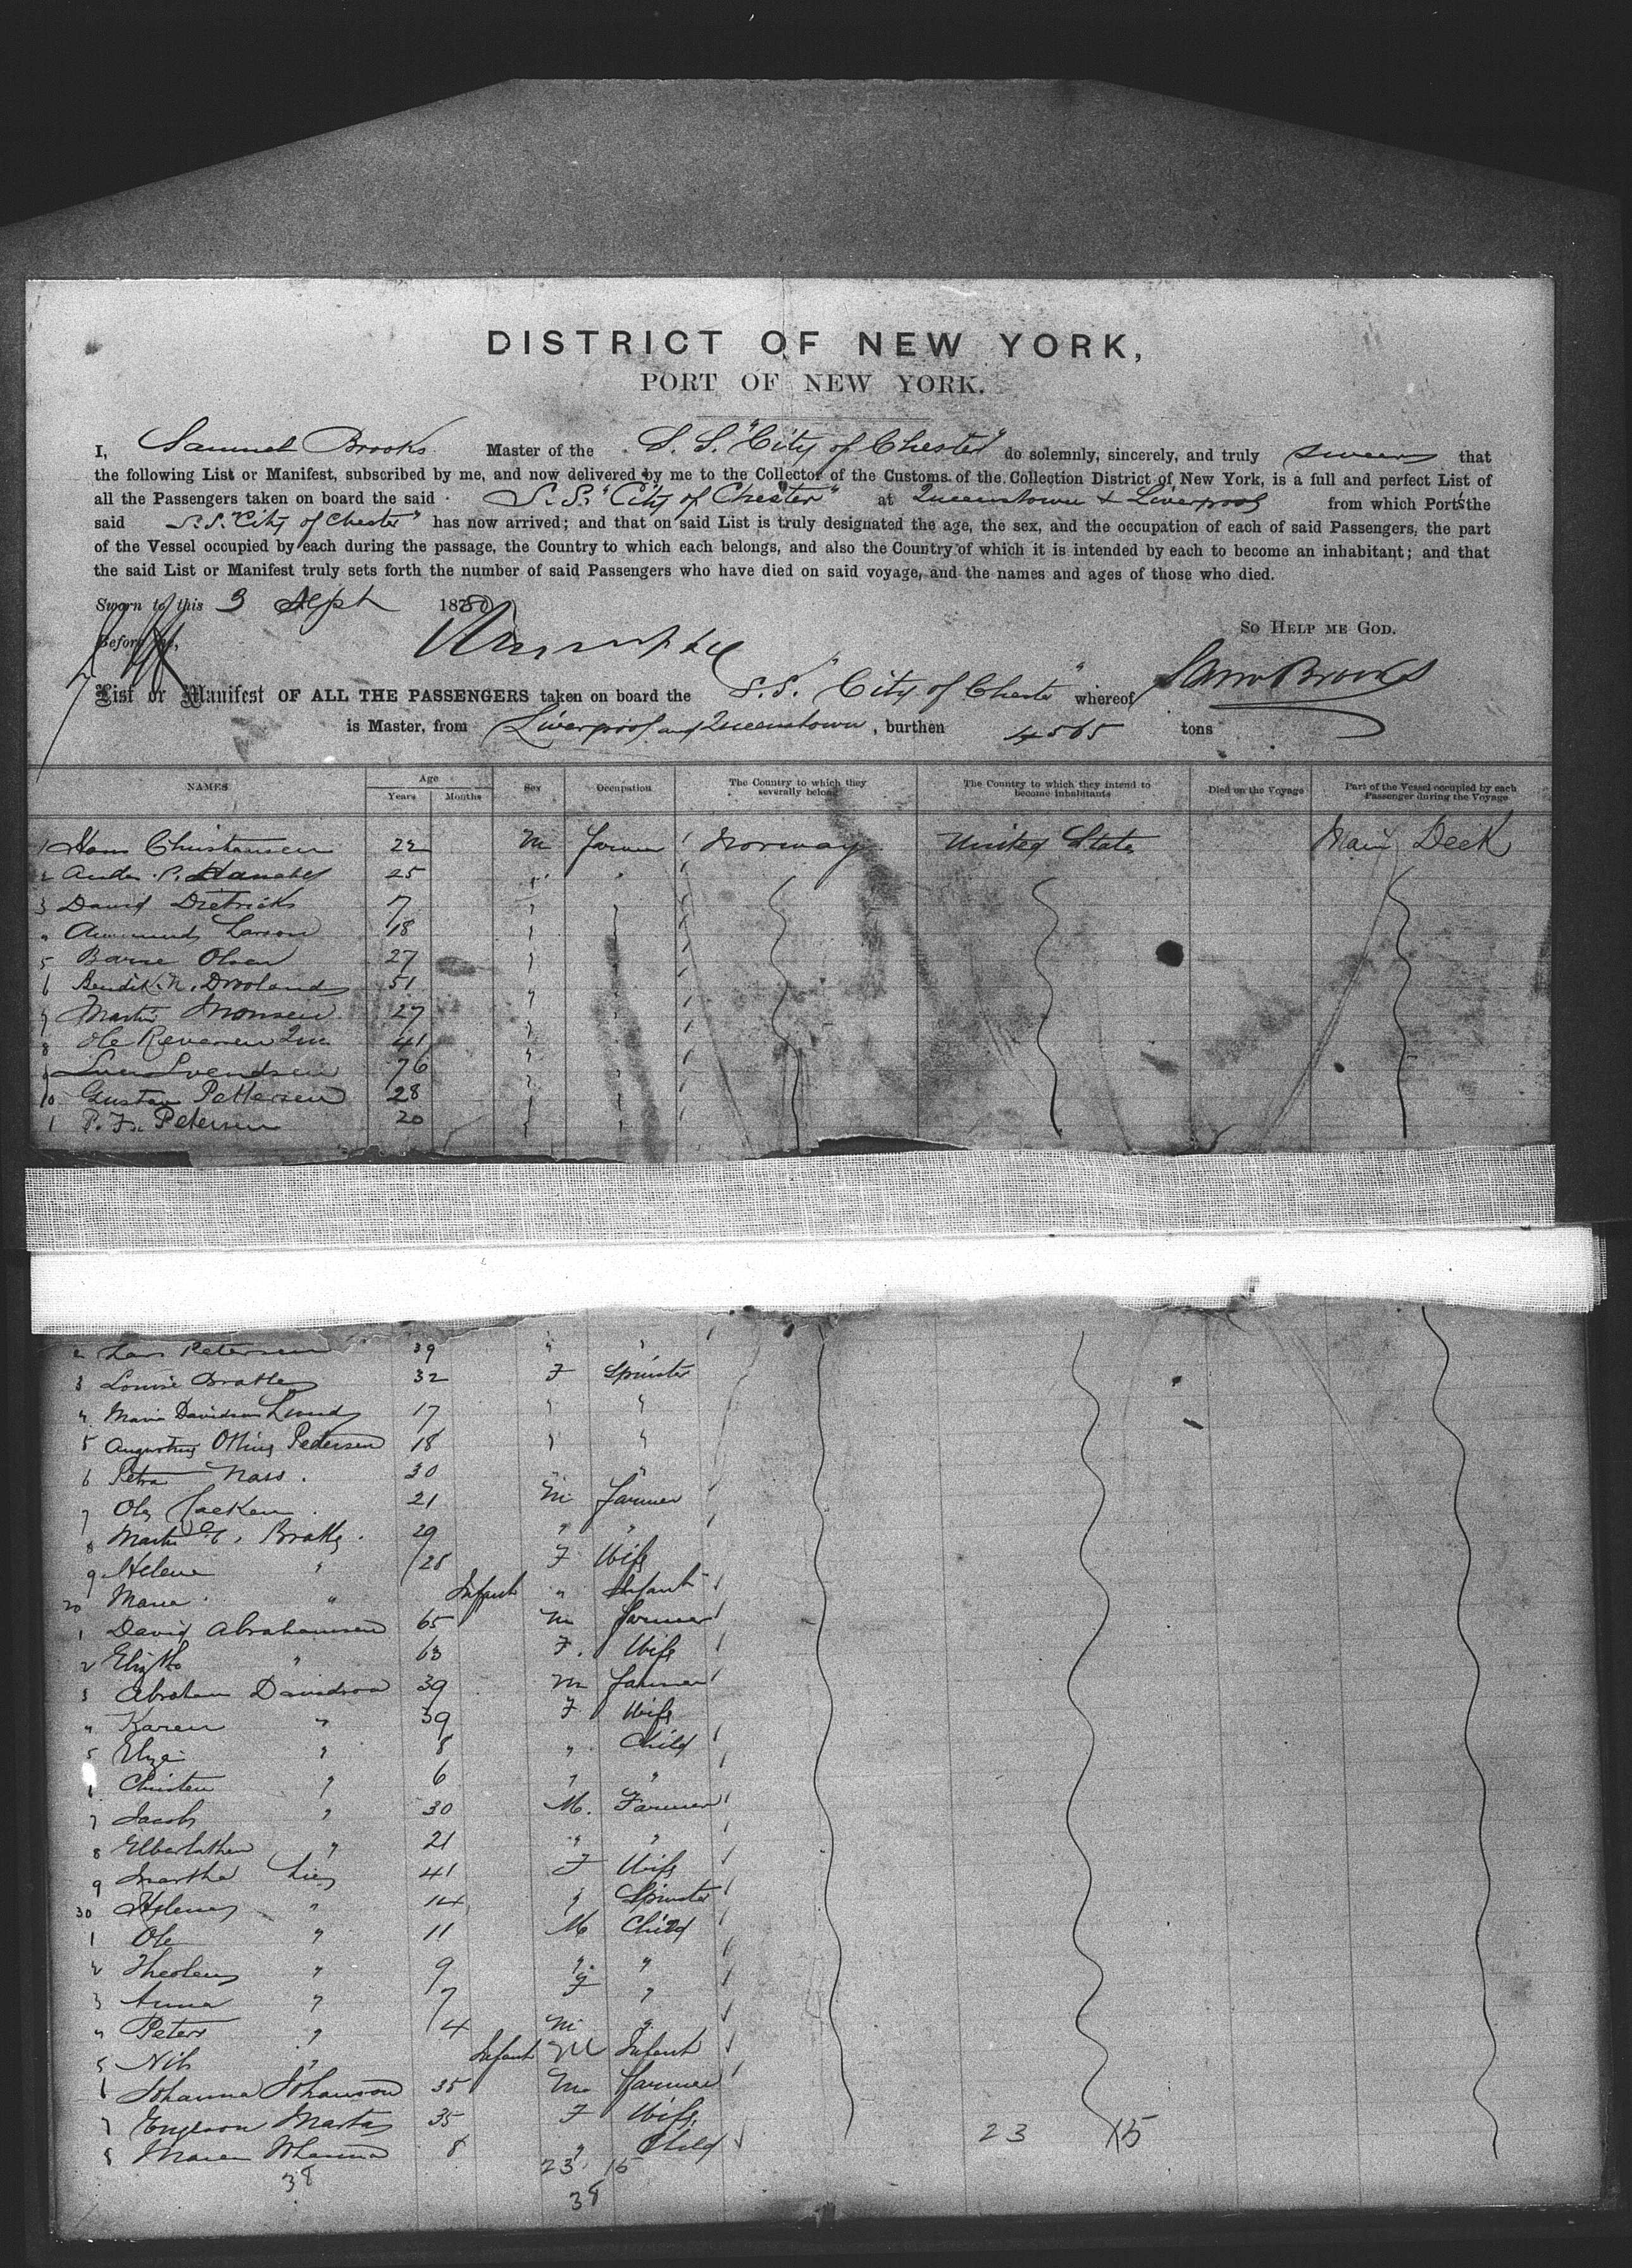 DISTRICT OF NEW YORK,
PORT OF NEW YORK.
I, Samuel Brooks Master of the S. S. "City of Chester" do solemnly, sincerely, and truly swear that
the following List or Manifest, subscribed by me, and now delivered by me to the Collector of the Customs of the Collection District of New York, is a full and perfect List of
all the Passengers taken on board the said S. S. "City of Chester" at Queenstown & Liverpool from which Port's the
said S. S. "City of Chester" has now arrived; and that on said List is truly designated the age, the sex, and the occupation of each of said Passengers, the part
of the Vessel occupied by each during the passage, the Country to which each belongs, and also the Country of which it is intended by each to become an inhabitant; and that
the said List or Manifest truly sets forth the number of said Passengers who have died on said voyage, and the names and ages of those who died.
Sworn to this 3 Sept 1880
Before me, So Help me God.
List or Manifest OF ALL THE PASSENGERS taken on board the S. S. "City of Chester" whereof Sam Brooks
is Master, from Liverpool and Queenstown, burthen 4565 tons
NAMES Age Years Months Sex Occupation The Country to which they severally belong The Country to which they intend to become inhabitants Died on the Voyage Part of the Vessel occupied by each Passenger during the Voyage
1 Hans Christansen 22 M farmer Norway United States Main Deck
2 25 "
3 David Dietricks 7 "
" Larson 18 "
5 Olsen 27 "
6 51 "
7 Martin Monsen 27 "
8 Ole 41 "
9 Svendsen 76 "
10 Gustav Pettersen 28 "
1 P. Petersen 20 "
2 Lars Petersen 39 " "
3 Louise Bratly 32 F Spinster
4 Maria Davidson Lund 17 " "
5 Pedersen 18 " "
6 Petra Nass. 30 " "
7 Ole 21 M farmer
8 Martin Bratly. 29 " "
9 Helene " 28 F Wife
20 Marie " Infant " Infant
1 David Abrahamsen 65 M farmer
2 " 63 F. Wife
3 Abraham Davidson 39 M farmer
" Karen " 39 F Wife
5 Eliza " 8 " Child
6 " 6 " "
7 Jacob " 30 M. Farmer
8 " 21 " "
9 Martha 41 F Wife
30 Helene " 14 " Spinster
1 Ole " 11 M Child
2 " 9 " "
3 Anna " 7 F "
" Peter " 4 M "
5 Nils " Infant M Infant
6 Johanna Johanson 35 M farmer
7 Marta 35 F Wife
8 Maren Johanna 8 " Child
23 15
38
23 15
38